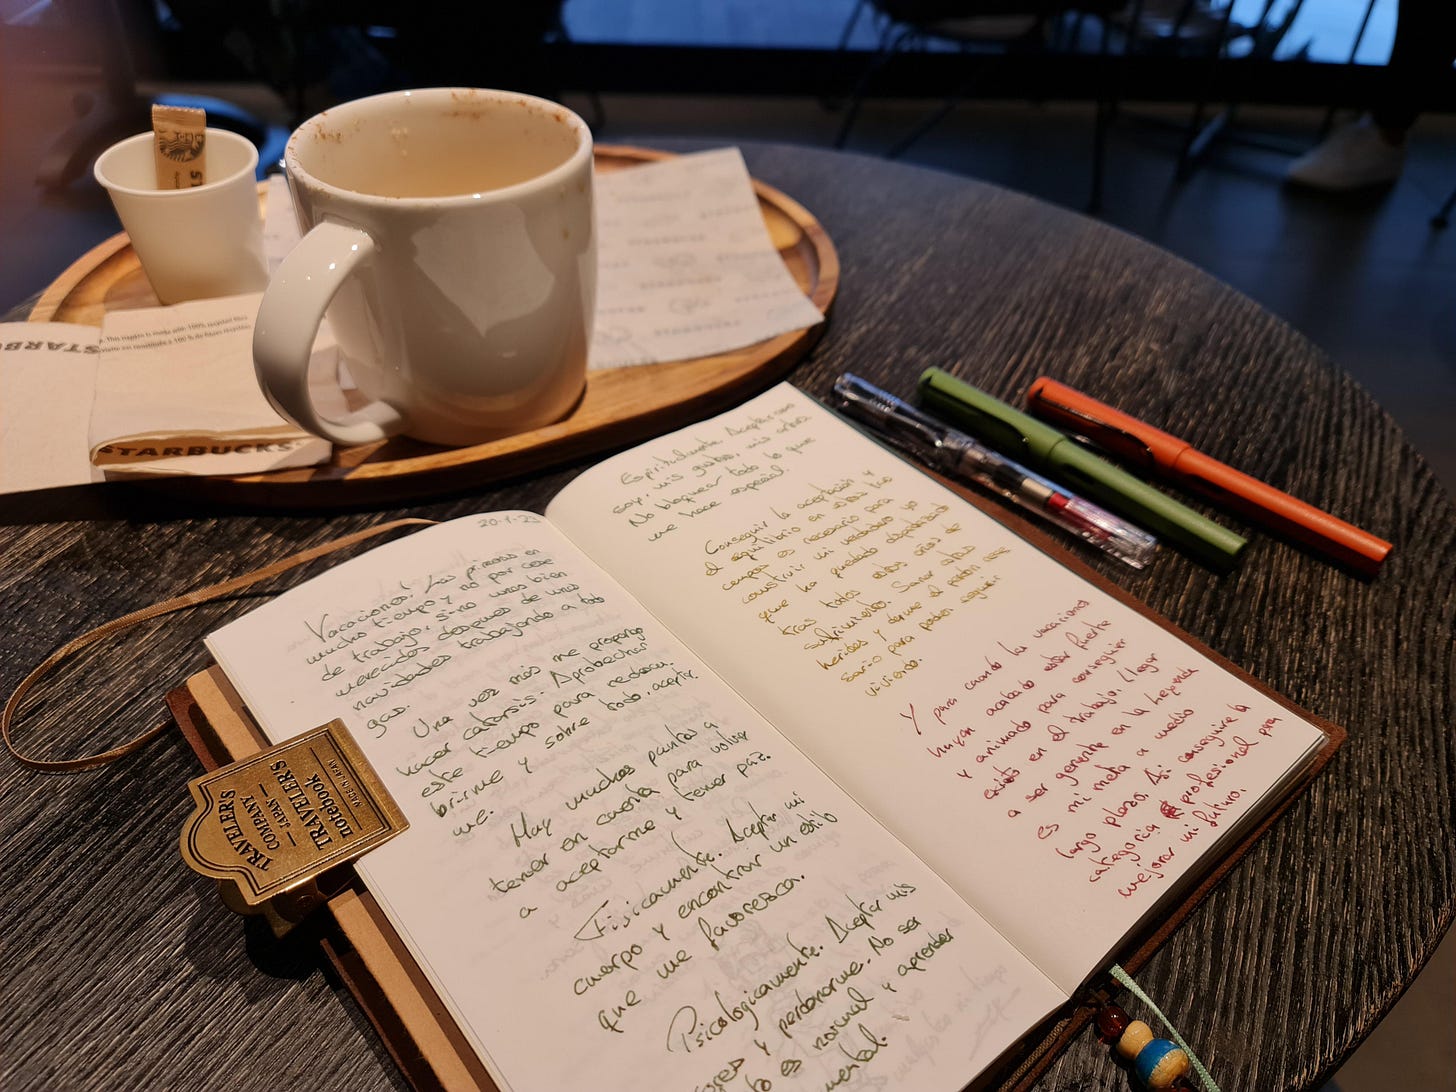 STARBUCKS
This napkin is made with 100% recycled fibre
STARBUCKS
TRAVELER'S
COMPANY
JAPAN
TRAVELER'S
notebook
MADE IN JAPAN
20-1-23
Vacaciones! Las primeras en
mucho tiempo y no por cese
de trabajo, si no unas bien
merecidas despues de unas
navidades trabajando a todo
gas.
Una vez más me propongo
hacer catarsis. Aprobechar
este tiempo para redescu-
brirme y sobre todo, acептar
me.
Hay muchos puntos a
tener en cuenta para volver
a aceptarme y tener paz.
Fisicamente. Aceptar mi
cuerpo y encontrar un estilo
que me favorezca.
Psicologicamente. Aceptar mis
y perdonarme. No ser
to es normal y aprender
mental.
Espiritualmente. Aceptar como
soy, mis gustos, mis
No bloquear todo lo que
me hace especial.
Conseguir la aceptación y
el equilibrio en estos tres
campos es necesario para
construir mi verdadero yo
que ha quedado
tras todos estos años de
sufrimiento. Sanar estas
heridas y darme el perdón
sario para poder seguir
viviendo.
Y para cuando las vacaciones
hayan acabado estar fuerte
y animado para conseguir
éxito en el trabajo. Llegar
a ser gerente en la
es mi meta a medio
largo plazo. Así conseguiré la
categoría profesional para
mejorar mi futuro.